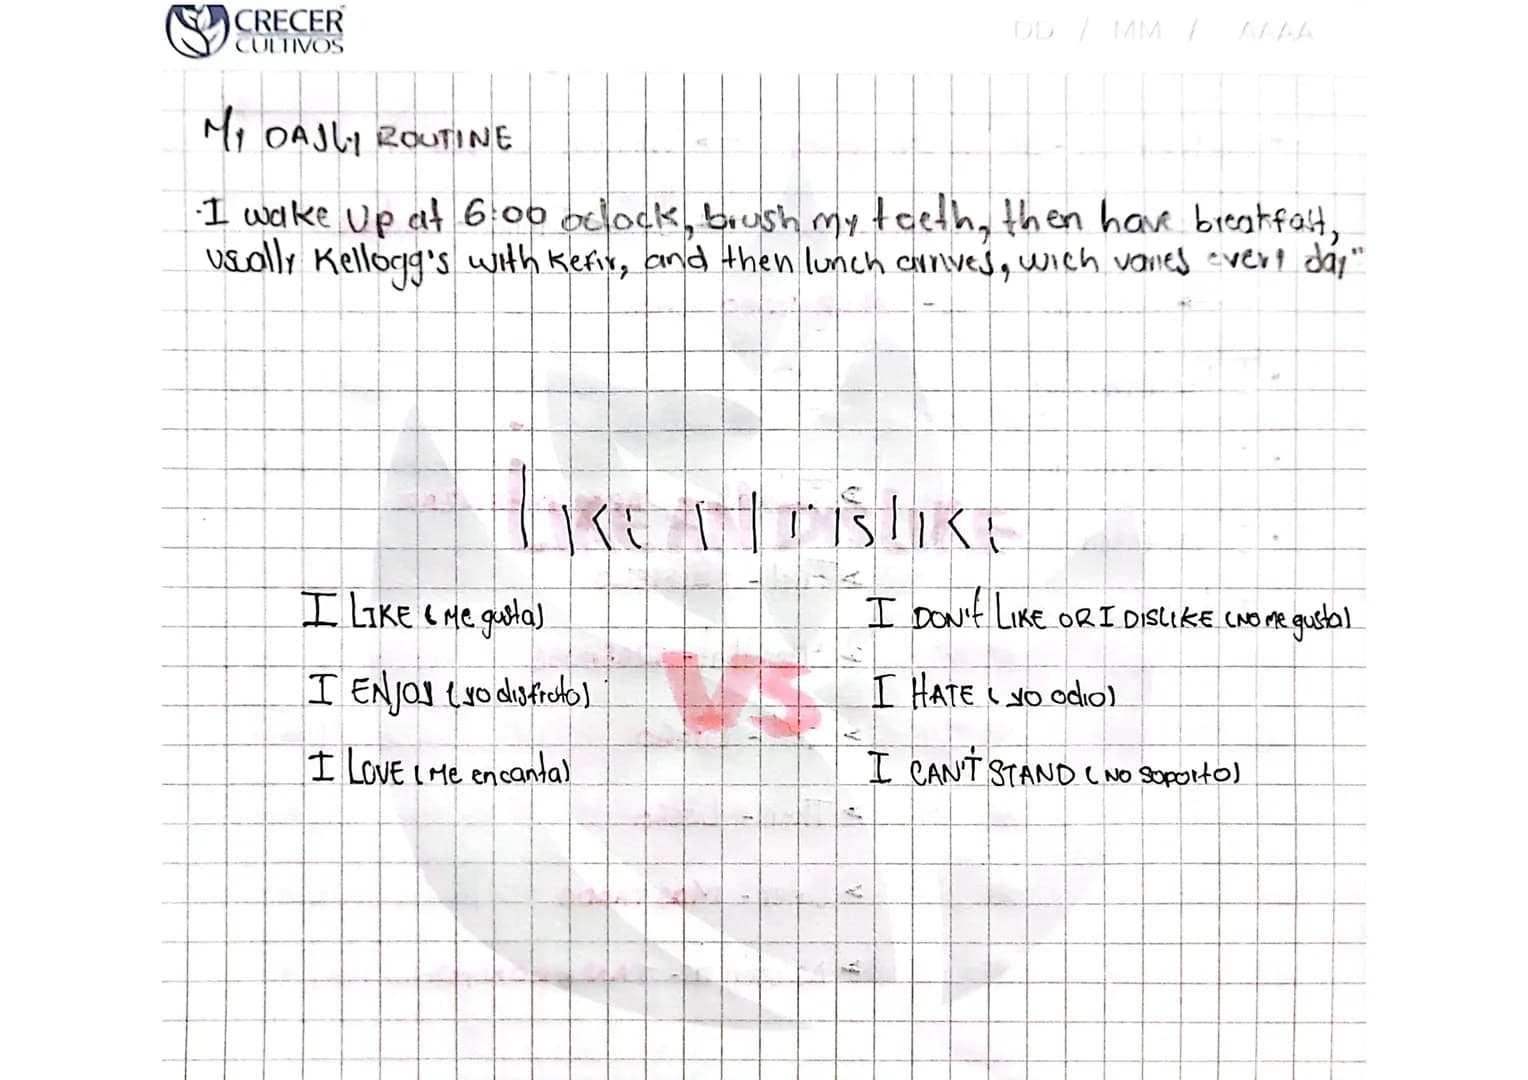 CRECER
CULTIVOS
DD / MM / AAAA
My DAILY ROUTINE
·I wake up at 6:00 oclock, brush my teeth, then have breakfast,
usally Kellogg's with Kefir, and then lunch arrives, wich varies every day"
LIKE AND DISLIKE
I LIKE (Me gusta)
I DON't LIKE OR I DISLIKE (NO ME gusta)
VS
I ENJOY (yo disfruto)
I HATE (yo odio)
I LOVE (Me encanta)
I CAN'T STAND (NO soporto)